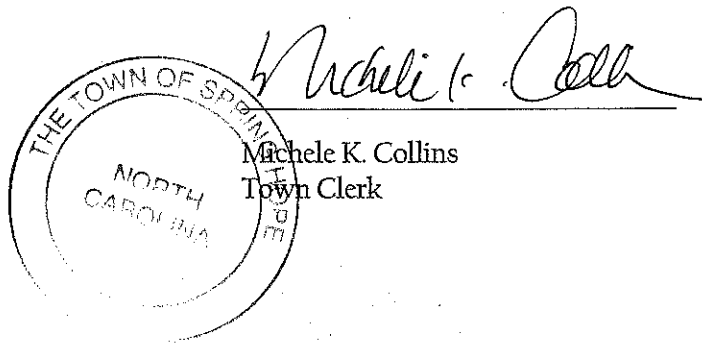 Michele K. Collins
THE TOWN OF SPRING HOPE
NORTH
CAROLINA
Michele K. Collins
Town Clerk